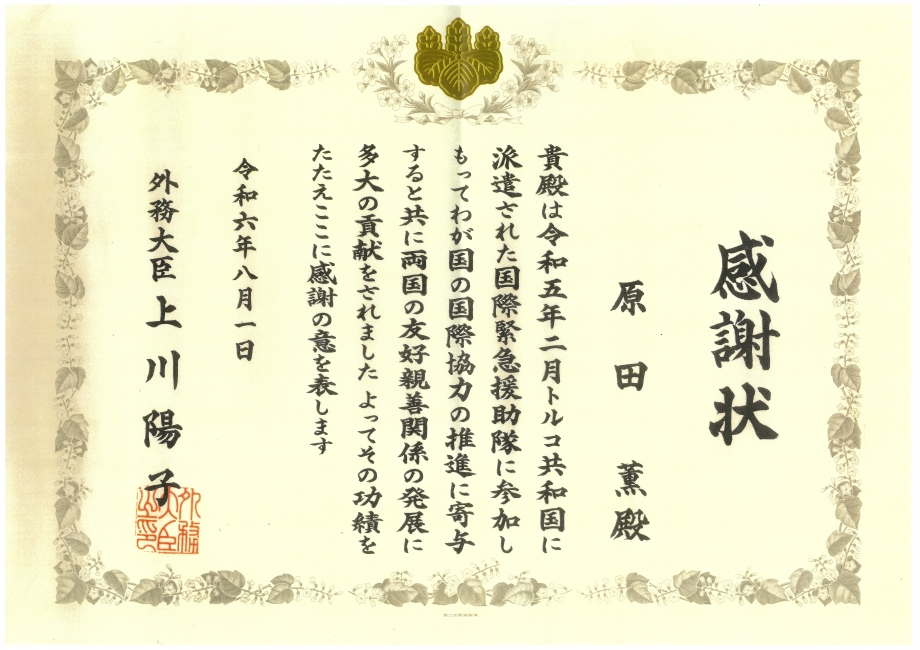 感謝状
原田薫殿
貴殿は令和五年二月トルコ共和国に
派遣された国際緊急援助隊に参加し
もってわが国の国際協力の推進に寄与
すると共に両国の友好親善関係の発展に
多大の貢献をされました よってその功績を
たたえここに感謝の意を表します
令和六年八月一日
外務大臣 上川陽子
外務
大臣
之印